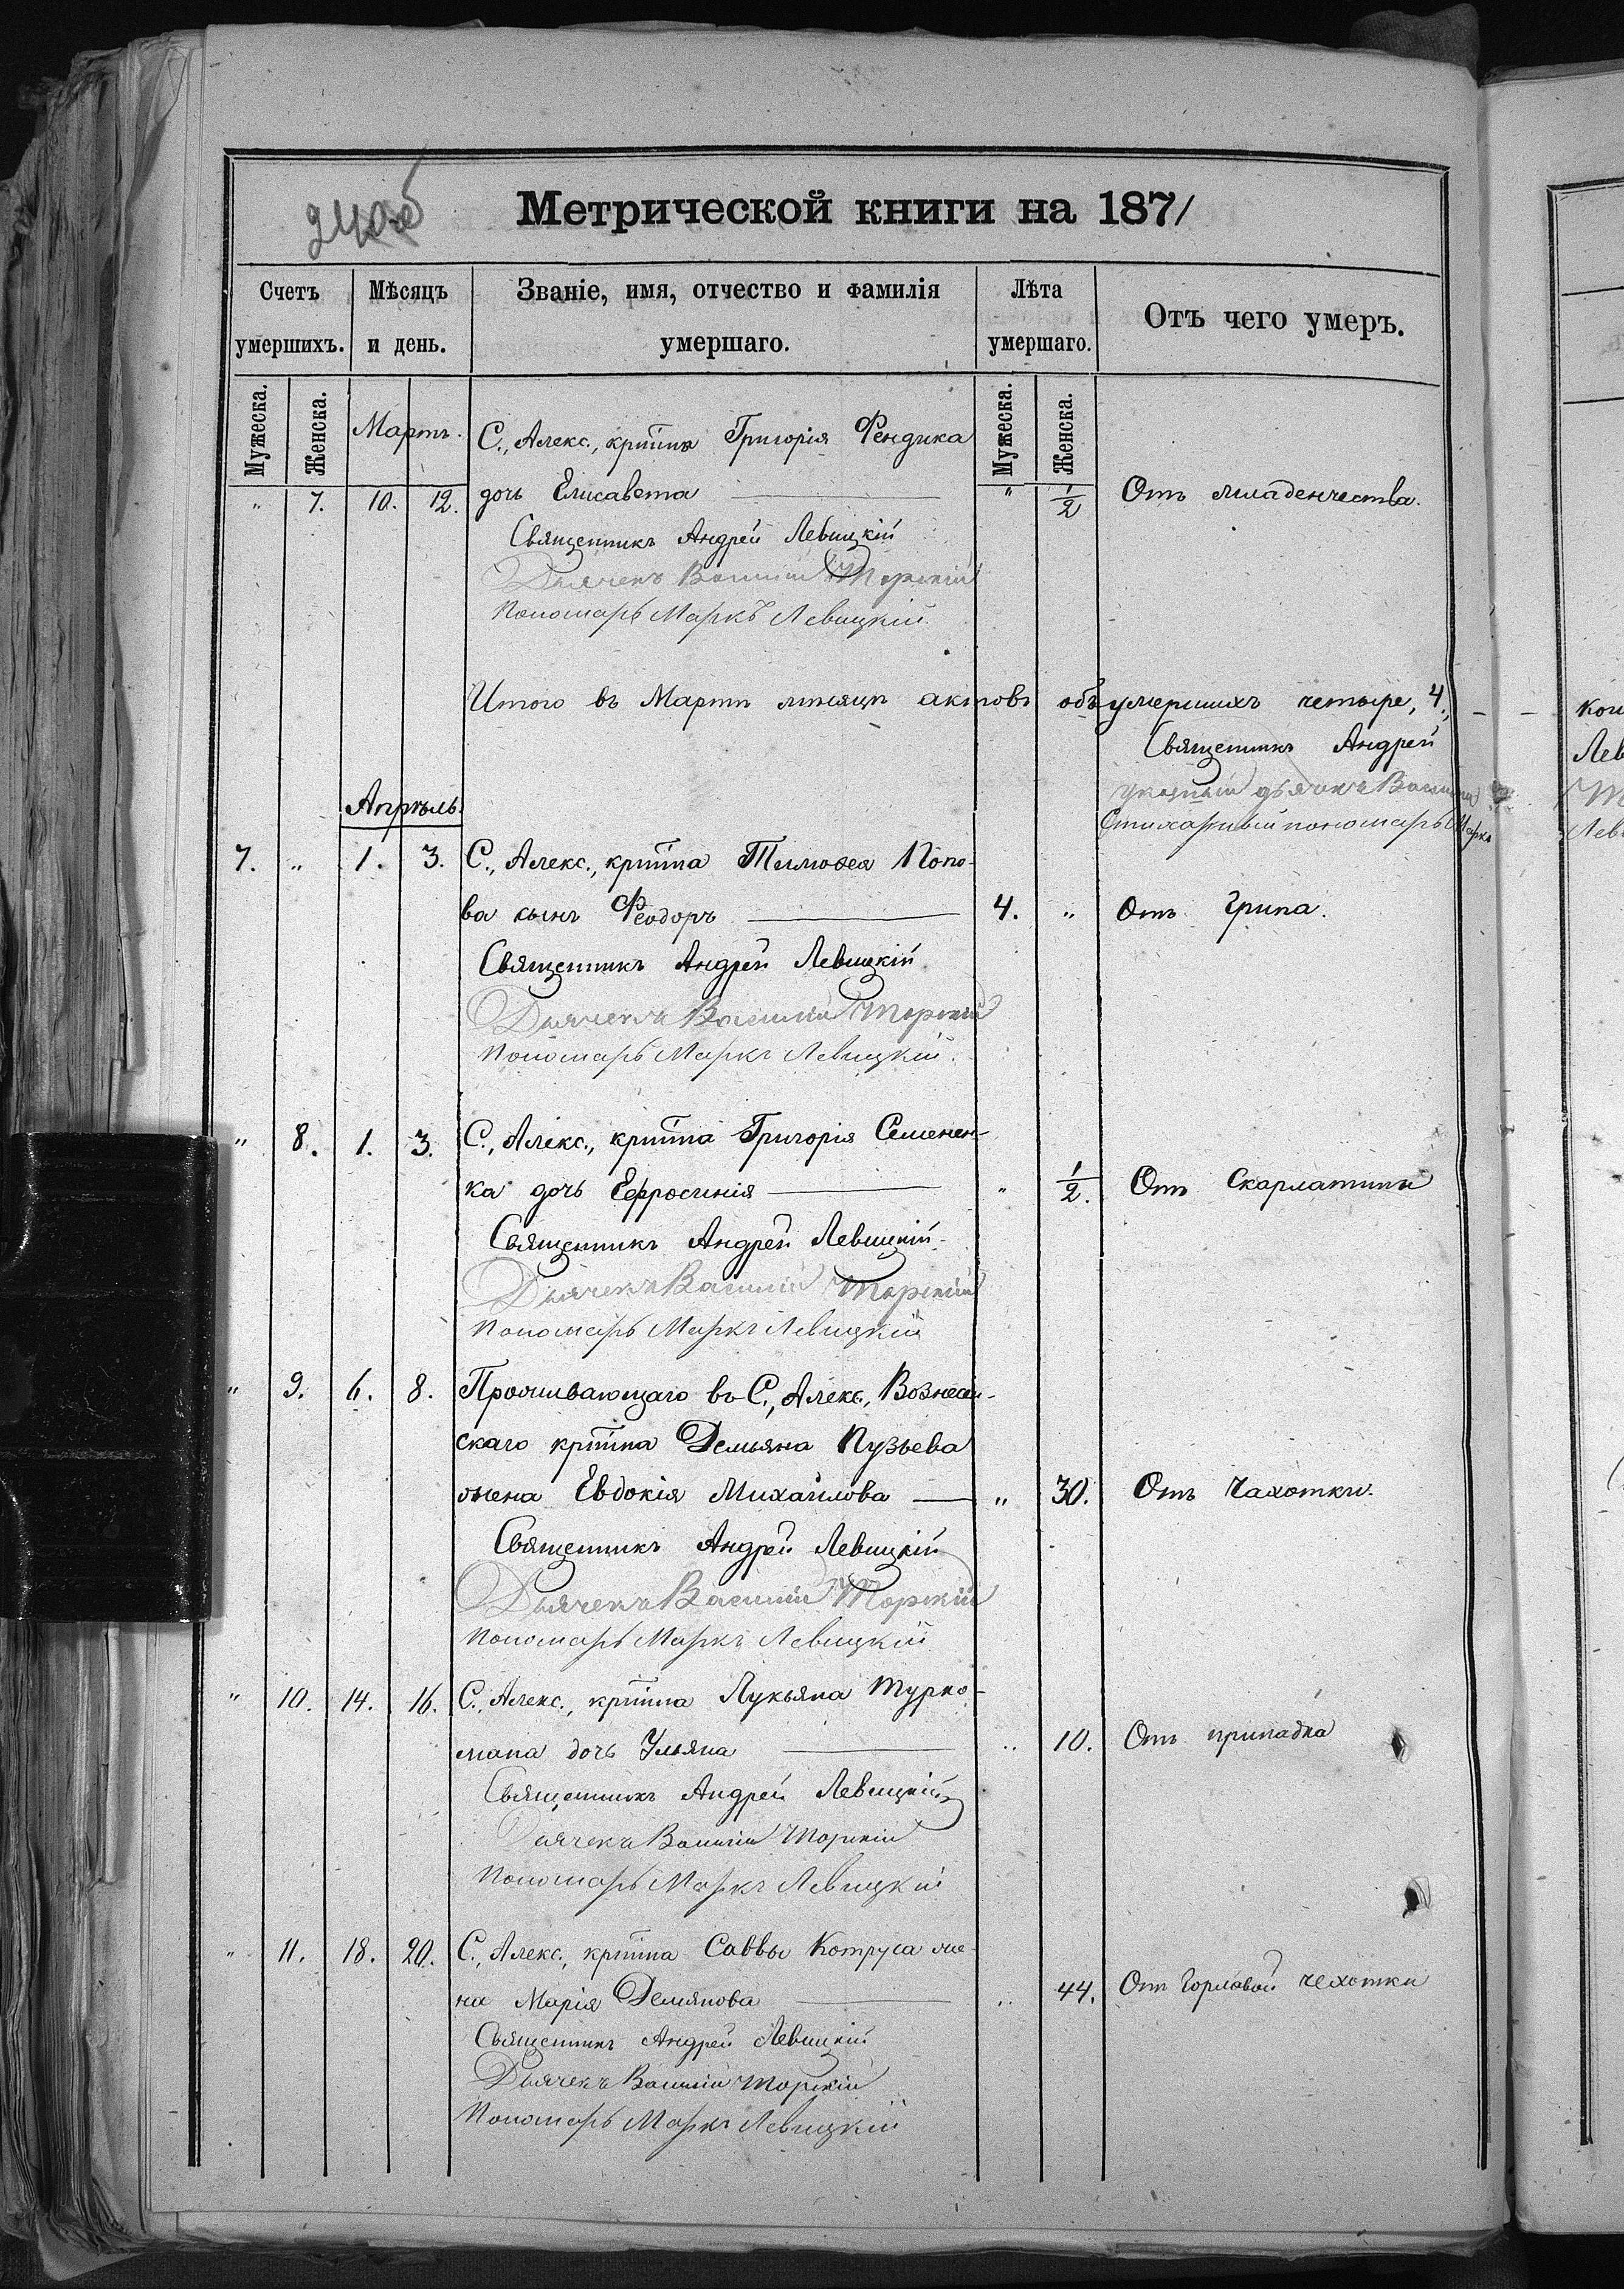 240об
Метрической книги на 1871
Счетъ умершихъ.
Мѣсяцъ и день.
Званіе, имя, отчество и фамилія умершаго.
Лѣта умершаго.
Отъ чего умеръ.
Мужеска.
Женска.
Мужеска.
Женска.
Мартъ.
С., Алекс., крптна Григорія Фендика
" 7. 10. 12. дочь Елисавета " 1/2 Отъ младенчества.
Священникъ Андрей Левицкій
Дьячекъ Василій Торскій
Пономарь Маркъ Левицкій
Итого въ Мартѣ мѣсяцѣ актовъ объ умершихъ четыре, 4.,
Священникъ Андрей
указный дьячекъ Василій
Стихарный пономарь Маркъ
Апрѣль.
7. " 1. 3. С., Алекс., крптна Тимофея Попо-
ва сынъ Феодоръ 4. " Отъ Грипа.
Священникъ Андрей Левицкій
Дьячекъ Василій Торскій
Пономарь Маркъ Левицкій.
" 8. 1. 3. С., Алекс., крптна Григорія Семенен-
ка дочь Ефросинія " 1/2. Отъ Скарлатины
Священникъ Андрей Левицкій
Дьячекъ Василій Торскій
Пономарь Маркъ Левицкій
" 9. 6. 8. Проживающаго въ С., Алекс., Вознесен-
скаго крптна Демьяна Пузьева
жена Евдокія Михайлова " 30. Отъ Чахотки.
Священникъ Андрей Левицкій
Дьячекъ Василій Торскій
Пономарь Маркъ Левицкій
" 10. 14. 16. С., Алекс., крптна Лукьяна Турко-
мана дочь Ульяна " 10. Отъ припадка
Священникъ Андрей Левицкій
Дьячекъ Василій Торскій
Пономарь Маркъ Левицкій
" 11. 18. 20. С., Алекс., крптна Саввы Котруса же-
на Марія Демянова " 44. Отъ Горловой чехотки
Священникъ Андрей Левицкій
Дьячекъ Василій Торскій
Пономарь Маркъ Левицкій